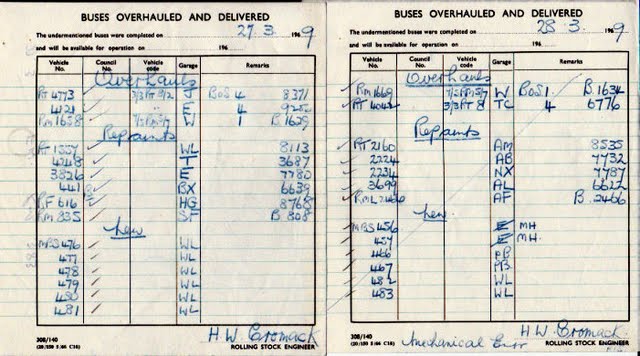 BUSES OVERHAULED AND DELIVERED
The undermentioned buses were completed on 27. 3. 1969
and will be available for operation on 196
Vehicle No. Council No. Vehicle code Garage Remarks
Overhauls
RT 4773 J BoS 4 8371
E 4
RM 1658 W 1 B.1629
Repaints
RT 1557 WL 8113
4248 T 3687
3826 E 7780
441 BX 6639
RF 616 HG 8768
RM 835 SF B 808
New
MBS 476 WL
477 WL
478 WL
479 WL
480 WL
481 WL
H.W. Cromack
308/140
ROLLING STOCK ENGINEER
BUSES OVERHAULED AND DELIVERED
The undermentioned buses were completed on 28. 3. 1969
and will be available for operation on 196
Vehicle No. Council No. Vehicle code Garage Remarks
Overhauls
RM 1669 W BoS 1. B.1634
RT 4042 3/3RT 8 TC 4 6776
Repaints
RT 2160 AM 8535
2224 AB 7732
2234 NX 7787
3699 AL 6622
RML 2466 AF B.2466
New
MBS 456 E MH
457 E MH.
466 PB
467 PB
482 WL
483 WL
H.W. Cromack
308/140
Mechanical Engr
ROLLING STOCK ENGINEER